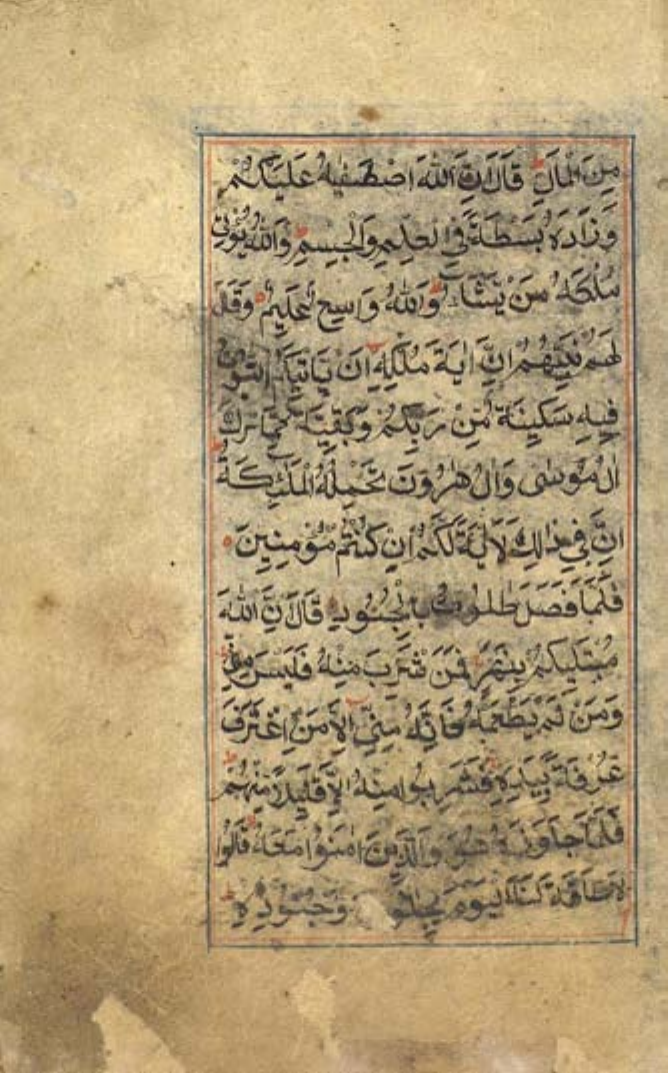 مِنَ الْمَالِ ط قَالَ اِنَّ اللّٰهَ اصْطَفٰيهُ عَلَيْكُمْ
وَزَادَهُ بَسْطَةً فِي الْعِلْمِ وَالْجِسْمِ ط وَاللّٰهُ يُؤْتِي
مُلْكَهُ مَنْ يَّشَآءُ ط وَاللّٰهُ وَاسِعٌ عَلِيْمٌ ه وَقَالَ
لَهُمْ نَبِيُّهُمْ اِنَّ اٰيَةَ مُلْكِهٖ اَنْ يَّاْتِيَكُمُ التَّابُوْتُ
فِيْهِ سَكِيْنَةٌ مِّنْ رَّبِّكُمْ وَبَقِيَّةٌ مِّمَّا تَرَكَ
اٰلُ مُوْسٰى وَاٰلُ هٰرُوْنَ تَحْمِلُهُ الْمَلٰٓئِكَةُ ط
اِنَّ فِيْ ذٰلِكَ لَاٰيَةً لَّكُمْ اِنْ كُنْتُمْ مُّؤْمِنِيْنَ ه
فَلَمَّا فَصَلَ طَالُوْتُ بِالْجُنُوْدِ قَالَ اِنَّ اللّٰهَ
مُبْتَلِيْكُمْ بِنَهَرٍ ج فَمَنْ شَرِبَ مِنْهُ فَلَيْسَ مِنِّيْ ج
وَمَنْ لَّمْ يَطْعَمْهُ فَاِنَّهٗ مِنِّيْ اِلَّا مَنِ اغْتَرَفَ
غُرْفَةً بِيَدِهٖ ج فَشَرِبُوْا مِنْهُ اِلَّا قَلِيْلًا مِّنْهُمْ ط
فَلَمَّا جَاوَزَهٗ هُوَ وَالَّذِيْنَ اٰمَنُوْا مَعَهٗ قَالُوْا
لَا طَاقَةَ لَنَا الْيَوْمَ بِجَالُوْتَ وَجُنُوْدِهٖ ط